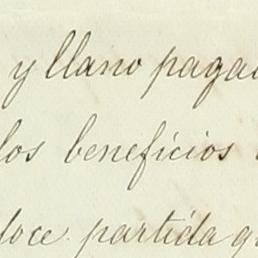 y llano paga
los beneficios
doce. partida q